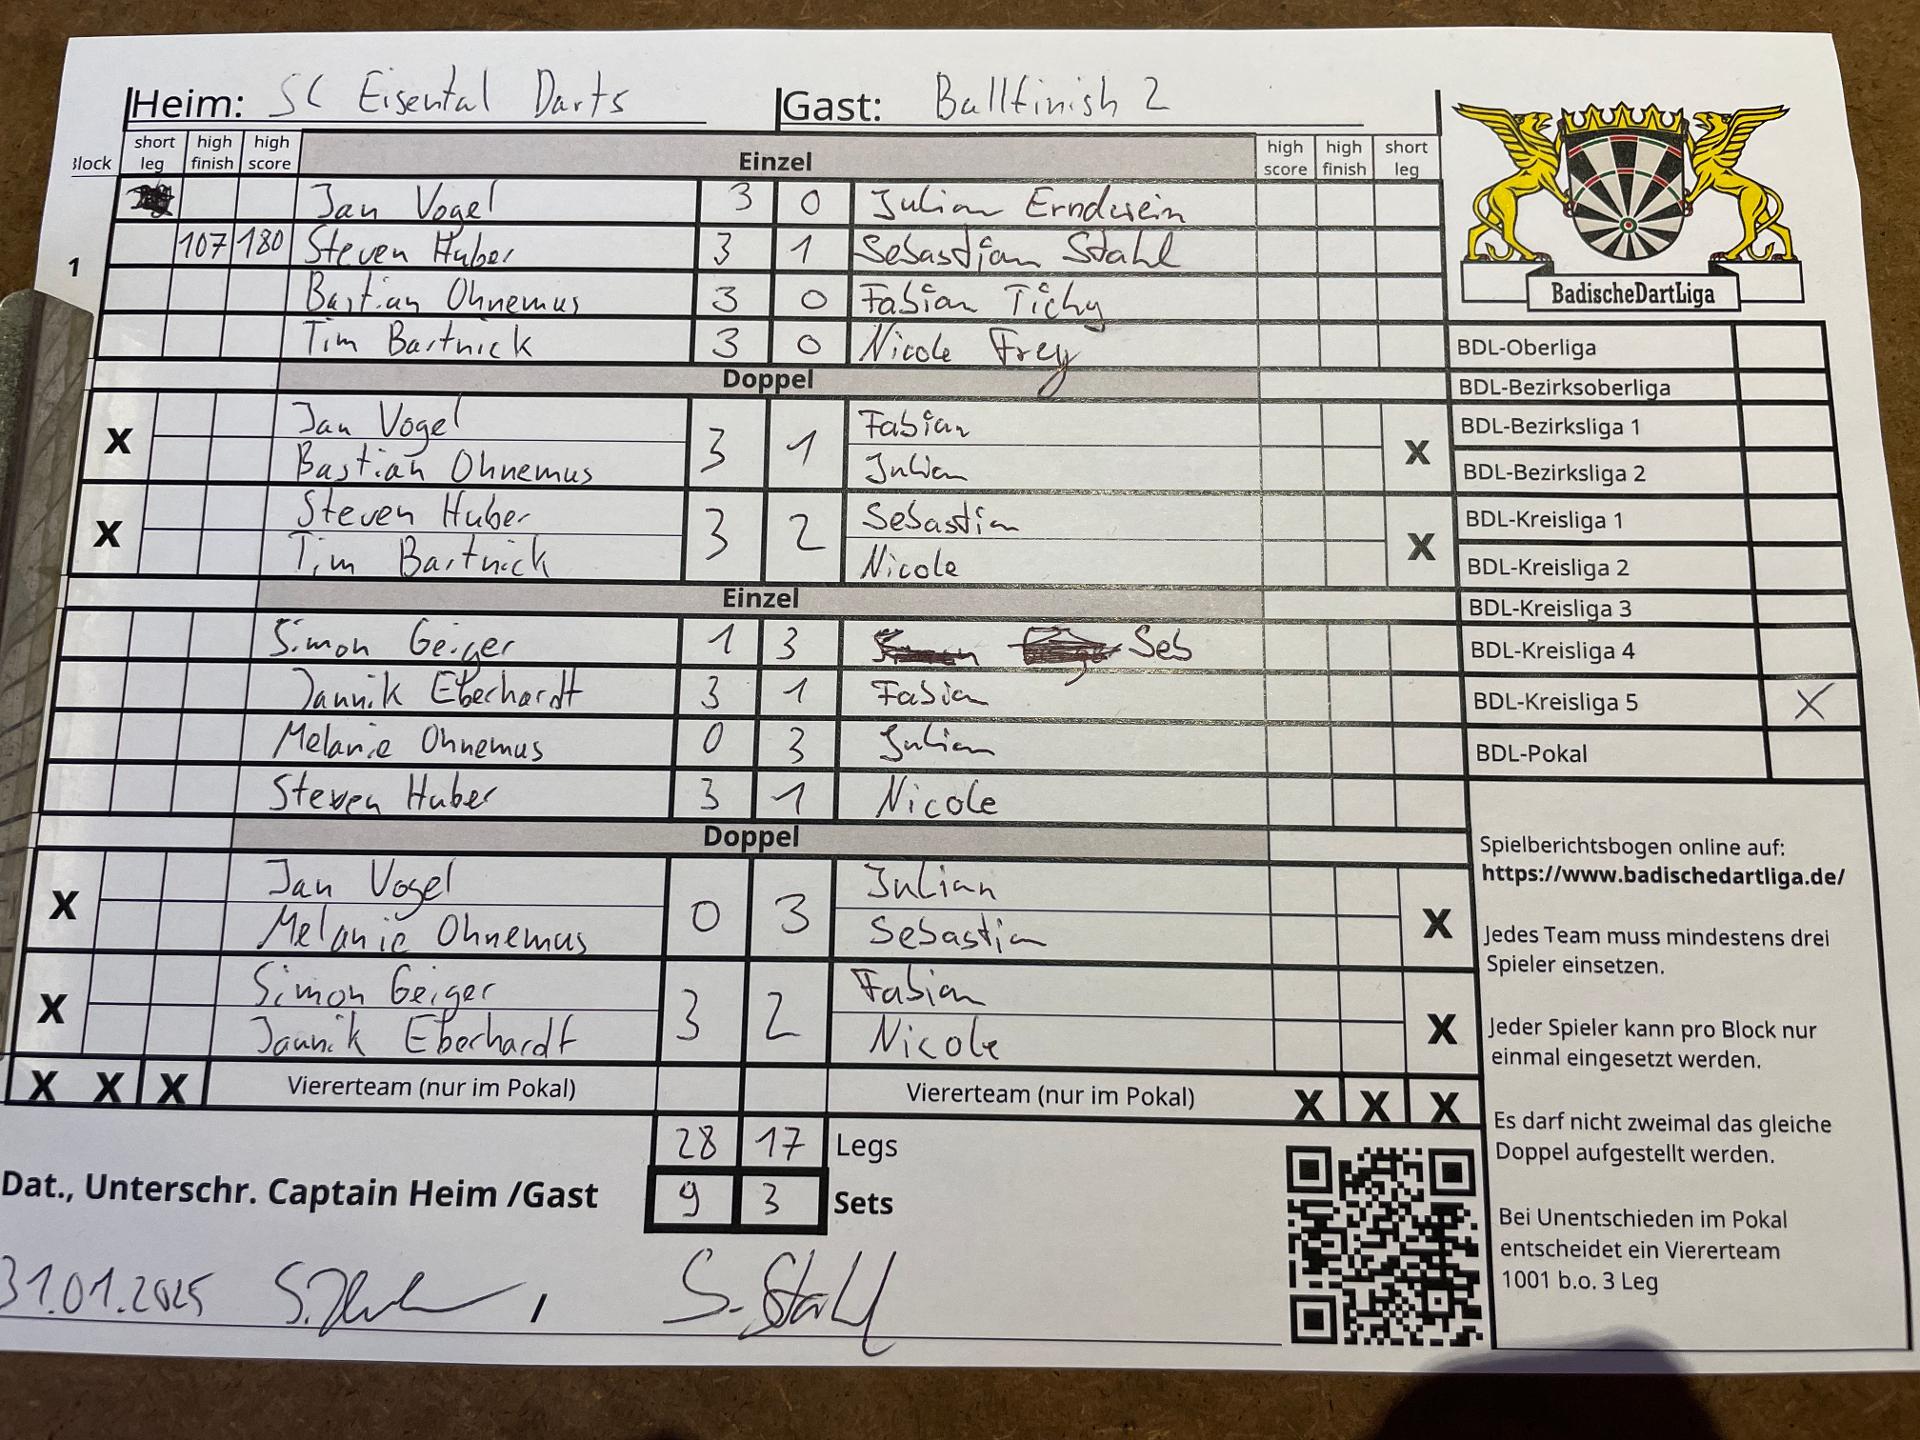 Heim: SC Eisental Darts Gast: Bullfinish 2
Block short leg high finish high score Einzel high score high finish short leg
Jan Vogel 3 0 Julian Erndwein
1 107 180 Steven Huber 3 1 Sebastian Stahl
Bastian Ohnemus 3 0 Fabian Tichy
Tim Bartnick 3 0 Nicole Frey
Doppel
X Jan Vogel 3 1 Fabian X
Bastian Ohnemus Julian
X Steven Huber 3 2 Sebastian X
Tim Bartnick Nicole
Einzel
Simon Geiger 1 3 Seb
Jannik Eberhardt 3 1 Fabian
Melanie Ohnemus 0 3 Julian
Steven Huber 3 1 Nicole
Doppel
X Jan Vogel 0 3 Julian X
Melanie Ohnemus Sebastian
X Simon Geiger 3 2 Fabian X
Jannik Eberhardt Nicole
X X X Viererteam (nur im Pokal) Viererteam (nur im Pokal) X X X
28 17 Legs
Dat., Unterschr. Captain Heim /Gast 9 3 Sets
31.01.2025 , S. Stahl
BadischeDartLiga
BDL-Oberliga
BDL-Bezirksoberliga
BDL-Bezirksliga 1
BDL-Bezirksliga 2
BDL-Kreisliga 1
BDL-Kreisliga 2
BDL-Kreisliga 3
BDL-Kreisliga 4
BDL-Kreisliga 5 X
BDL-Pokal
Spielberichtsbogen online auf:
https://www.badischedartliga.de/
Jedes Team muss mindestens drei
Spieler einsetzen.
Jeder Spieler kann pro Block nur
einmal eingesetzt werden.
Es darf nicht zweimal das gleiche
Doppel aufgestellt werden.
Bei Unentschieden im Pokal
entscheidet ein Viererteam
1001 b.o. 3 Leg